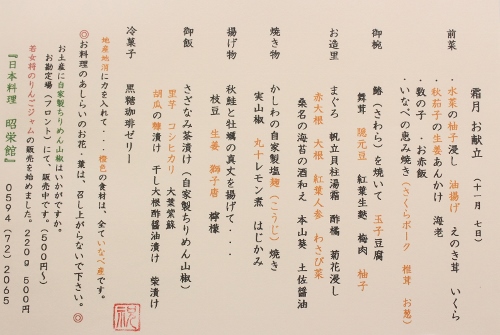 霜月 お献立 (十一月 七日)
前菜 ・水菜の柚子浸し 油揚げ えのき茸 いくら
・秋茄子の生姜あんかけ 海老
・数の子 ・お赤飯
・いなべの恵み焼き(さくらポーク 椎茸 お葱)
御椀 鰆(さわら)を焼いて 玉子豆腐
舞茸 隠元豆 紅葉生麩 梅肉 柚子
お造里 まぐろ 帆立貝柱湯霜 酢橘 菊花浸し
赤大根 大根 紅葉人参 わさび菜
桑名の海苔の酒和え 本山葵 土佐醤油
焼き物 かしわの自家製塩麹(こうじ)焼き
実山椒 丸十レモン煮 はじかみ
揚げ物 秋鮭と牡蠣の真丈を揚げて・・・
枝豆 生姜 獅子唐 檸檬
御飯 さざなみ茶漬け(自家製ちりめん山椒)
里芋 コシヒカリ 大葉紫蘇
胡瓜の糠漬け 干し大根酢醤油漬け 柴漬け
冷菓子 黒糖珈琲ゼリー
地産地消に力を入れて・・・橙色の食材は、全ていなべ産です。
◎お料理のあしらいのお花・葉は、召し上がらないで下さい。◎
お土産に自家製ちりめん山椒はいかがですか。
お勘定場(フロント)にて、販売中です。(500円~)
若女将のりんごジャムの販売を始めました。220g 500円
『日本料理 昭栄館』 0594(72)2065